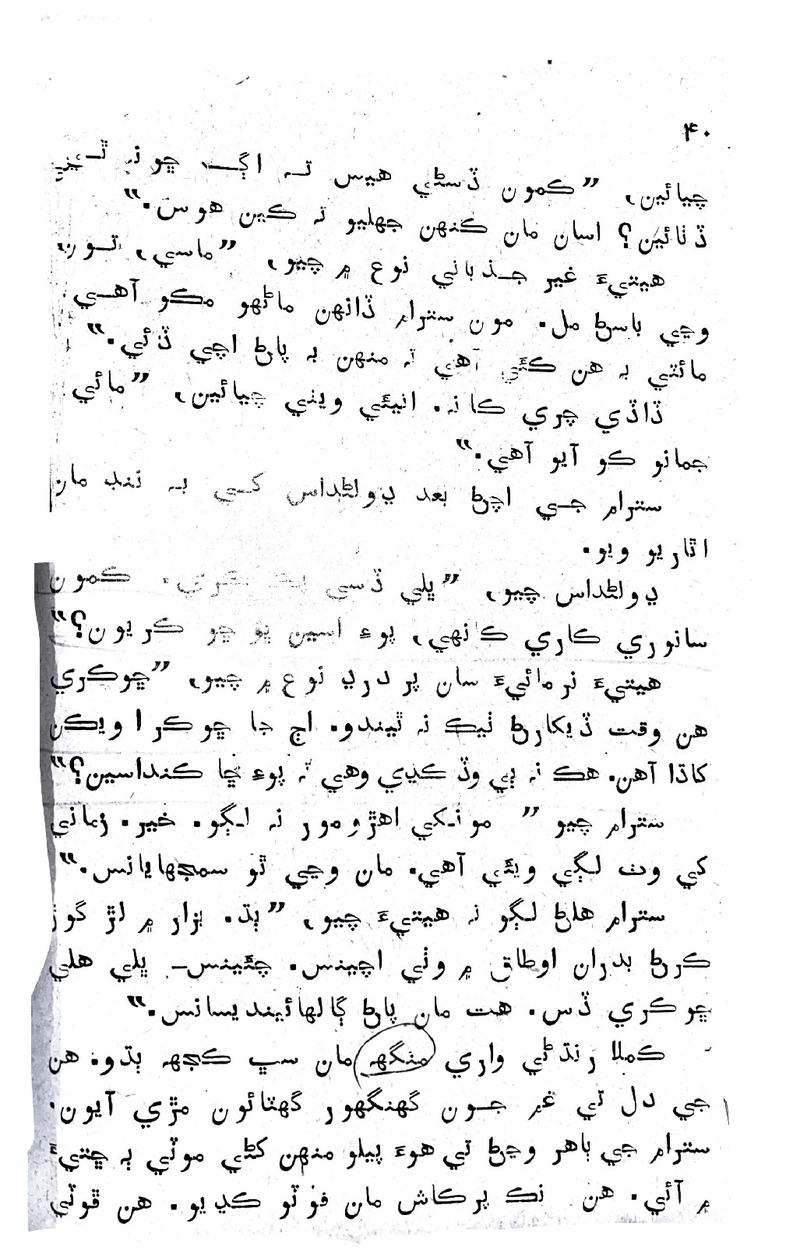 ۴۰
چيائين، ”ڪمون ڏسڻي هيس تہ اڳ ڇو نہ
ڏنائين؟ اسان مان ڪنهن جهليو تہ ڪين هوس.“
هيتيءَ غير جذباتي نوع ۾ چيو، ”ماسي، تون
وڃي باسڻ مل. مون سترام ڏانهن ماڻهو مڪو آهي
مائتي بہ هن ڪئي آهي تہ منهن بہ پاڻ اچي ڏئي.“
ڏاڏي چري ڪانہ. اتيئي ويٺي چيائين، ”مائي
جمانو ڪو آيو آهي.“
سترام جي اچڻ بعد دولڻداس کي بہ ننڊ مان
اٿاريو ويو.
دولڻداس چيو، ”ڀلي ڏسي ڪري. ڪمون
سانوري ڪاري ڪانهي، پوءِ اسين ڀو ڇو ڪريون؟“
هيتيءَ نرمائيءَ سان پر درد نوع ۾ چيو، ”ڇوڪري
هن وقت ڏيکارڻ ٺيڪ نہ ٿيندو. اڄ جا ڇوڪرا ويڪن
کاڌا آهن. هڪ نہ ٻي وڏ ڪڍي وهي تہ پوءِ ڇا ڪنداسين؟“
سترام چيو ” مونکي اهڙو مور نہ لڳو. خير. زماني
کي وٺ لڳي ويئي آهي. مان وڃي ٿو سمجهايانس.“
سترام هلڻ لڳو تہ هيتيءَ چيو، ”ٻڌ. بزار ۾ لڙ گوڙ
ڪرڻ بدران اوطاق ۾ وٺي اچينس. چئينس- ڀلي هلي
ڇوڪري ڏس. هت مان پاڻ ڳالهائينديسانس.“
ڪملا رنڌڻي واري منگهہ مان سڀ ڪجهہ ٻڌو. هن
جي دل تي غم جون گهنگهور گهٽائون مڙي آيون.
سترام جي ٻاهر وڃڻ تي هوءَ پيلو منهن کڻي موٽي بہ ڇتيءَ
۾ آئي. هن نڪ پرڪاش مان فوٽو ڪڍيو. هن ڦوٽي